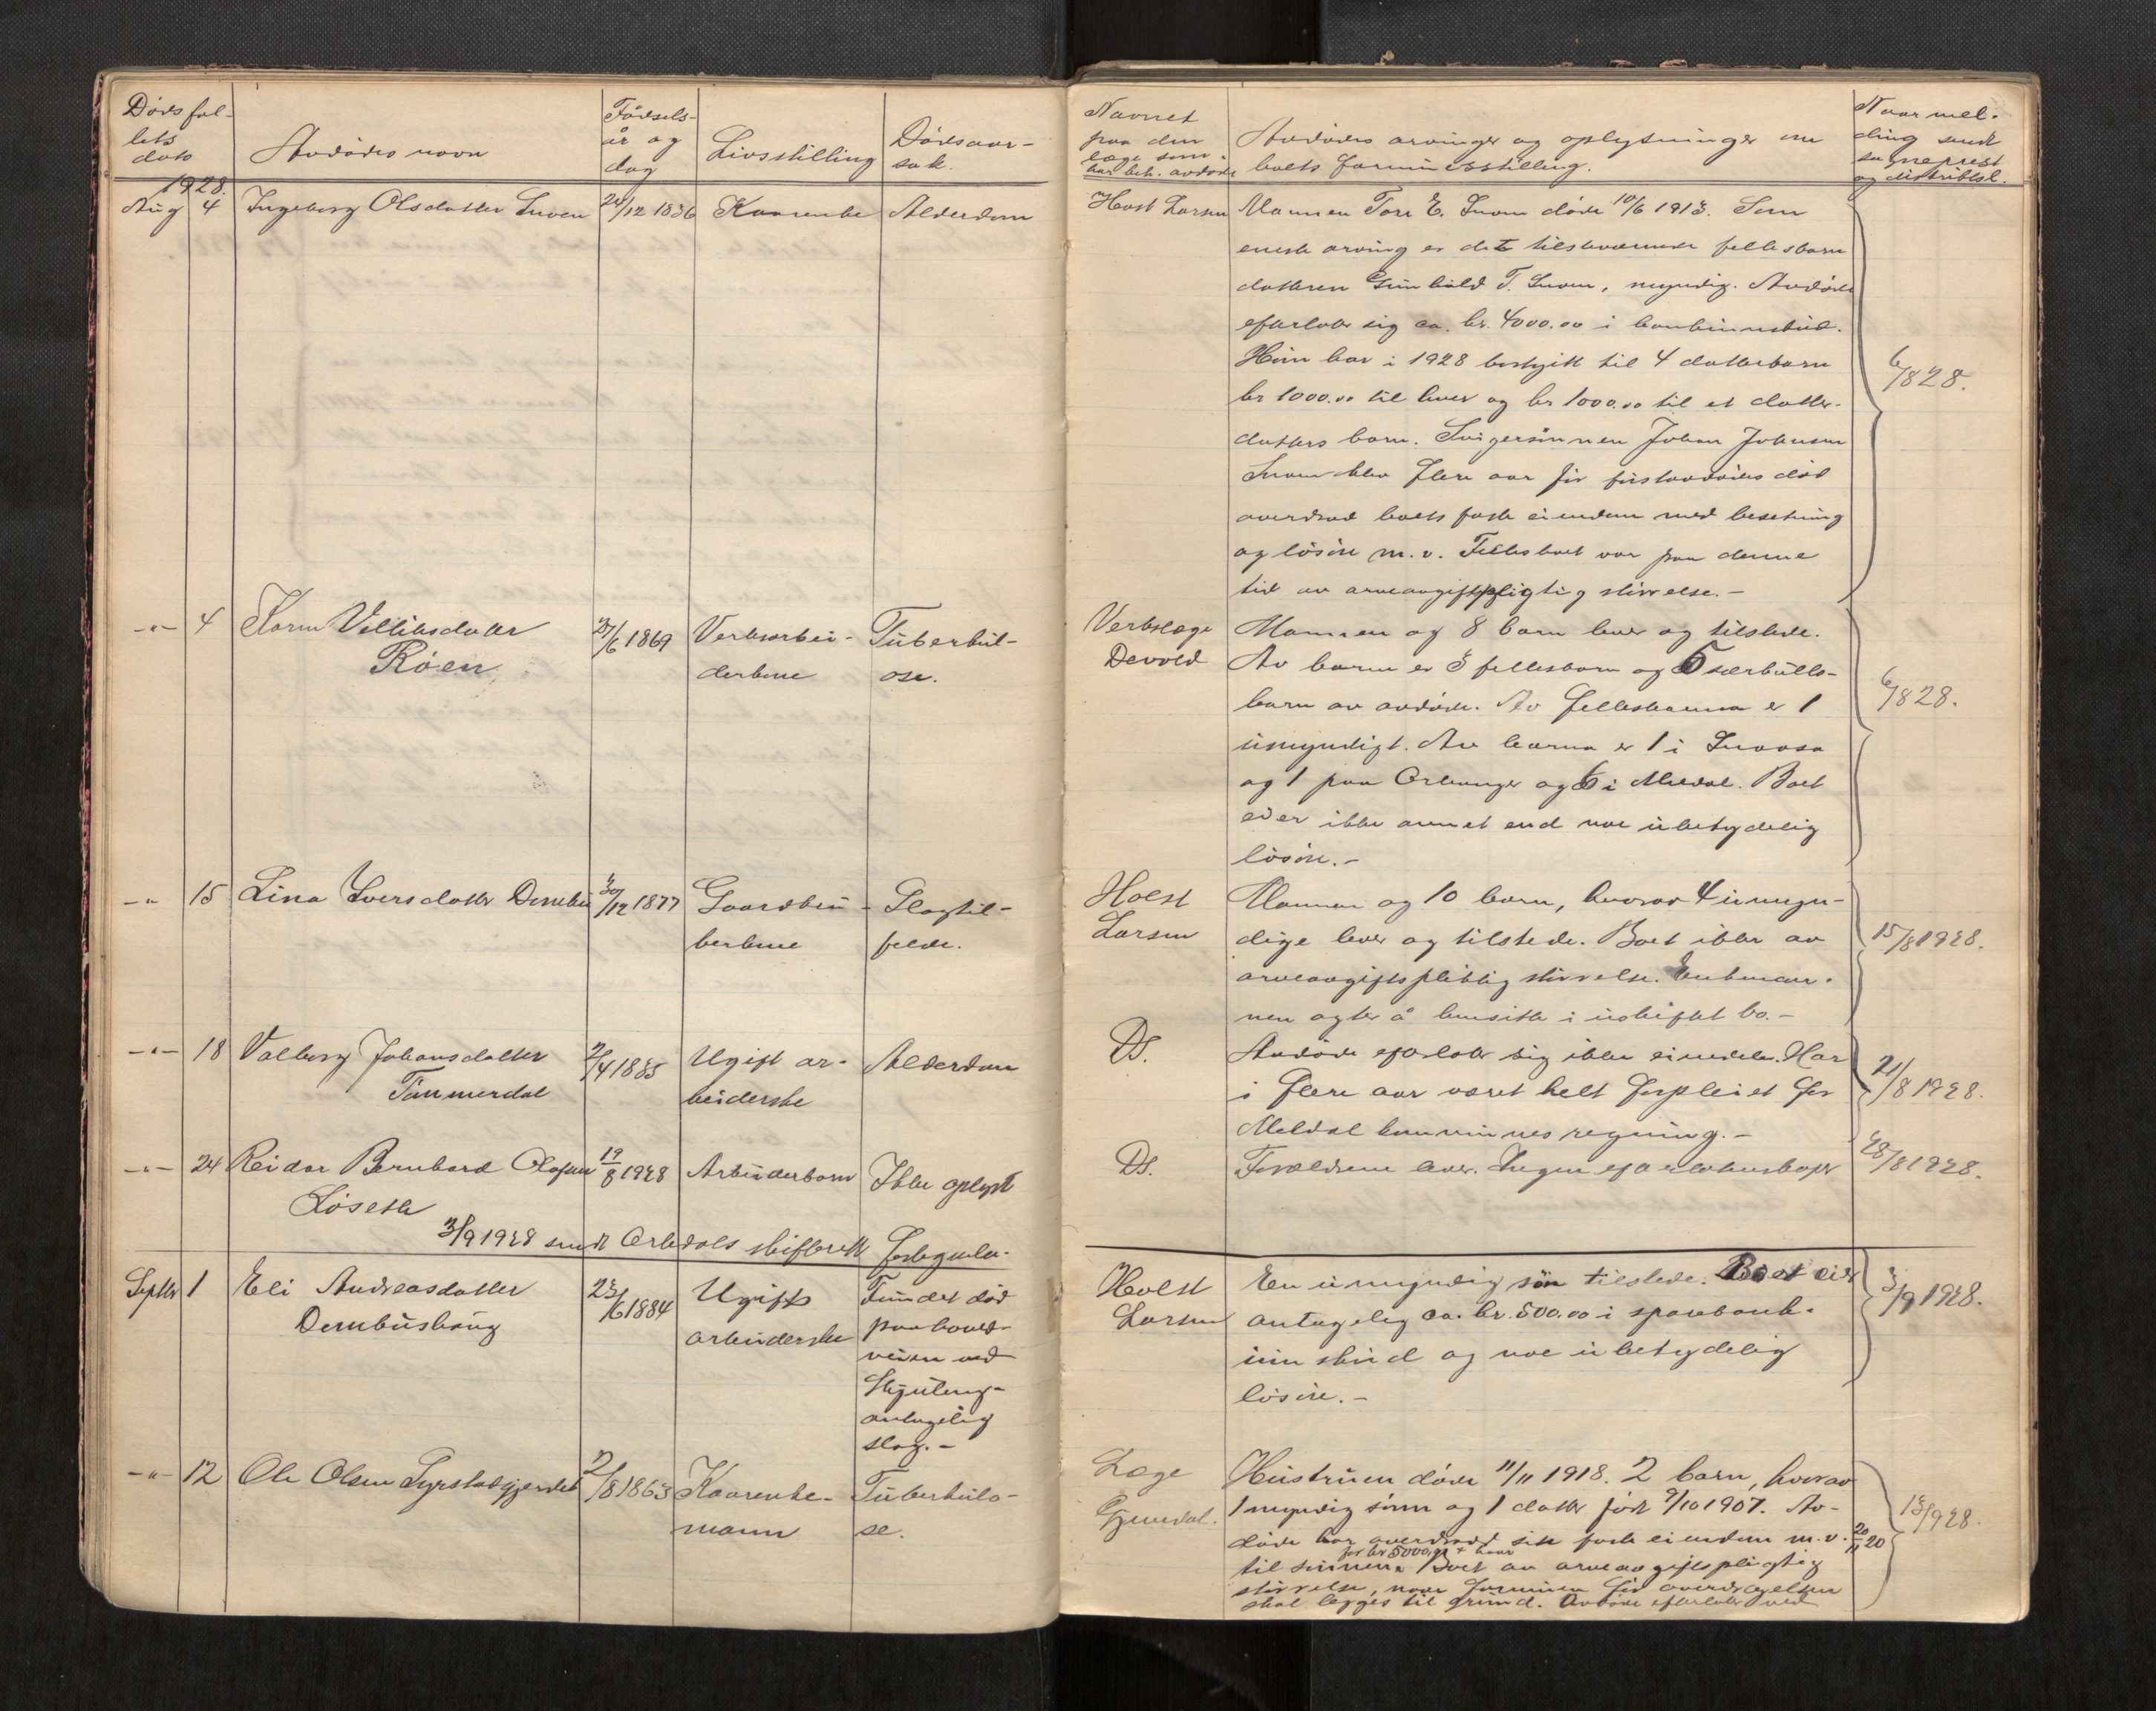 Dødsfal-
lets
dato
Avdødes navn
Fødsels-
år og
dag
Livsstilling
Dødsaar-
sak.
1928.
Aug 4 Ingeborg Olsdatter Snoen 24/12 1836 Kaarenke Alderdom
-"- 4 Karen Velliksdatter 27/6 1869 Verksarbei- Tuberkul-
Røen derkone ose.
-"- 15 Lina Iversdatter Drugu 30/12 1877 Gaardbru- Slagtil-
kerkone felde.
-"- 18 Valborg Johansdatter 2/4 1835 Ugift ar- Alderdom
Timmerdal beiderske
-"- 24 Reidar Bernhard Olafsen 19/8 1928 Arbeiderbarn Ikke oplyst
Løseth
3/9 1928 sendt Orkdals skifterett fortegnelse.
Septbr 1 Eli Andreasdatter 23/6 1884 Ugift Fundet død
Drugushaug arbeiderske paa hoved-
veien ved
antagelig
slag.-
-"- 12 Ole Olsen Syrstadgjerdet 2/8 1863 Kaarenke- Tuberkulo-
mann se.
Navnet
paa den
læge som
har beh. avdøde
Avdødes arvinger og oplysninger om
boets formuesstilling.
Naar mel-
ding sendt
sogneprest
og distriktsl.
Holst Larsen Mannen Tore E. Snoen døde 10/6 1913. Som
eneste arving er det tilstedeværende fellesbarn
datteren Gunhild T. Snoen, myndig. Avdøde
efterlot sig ca. kr. 4000.00 i bankinnskud.
Hun har i 1928 bortgitt til 4 datterbarn 6/8 28.
kr 1000.00 til hver og kr 1000.00 til et datter-
datters barn. Svigersønnen Johan Johnsen
Snoen blev flere aar før førstavdødes død
overdrad boets faste eiendom med besetning
og løsøre m.v. Fellesboet var paa denne
tid av arveavgiftspligtig størrelse.-
Verkslæge Mannen og 8 barn lever og tilstede.
Devold Av barna er 3 fellesbarn og 5 særkulls-
barn av avdøde. Av fellesbarna er 1 6/8 28.
umyndigt. Av barna er 1 i Snaasa
og 1 paa Orkanger og 6 i Meldal. Boet
eier ikke annet end noe ubetydelig
løsøre.-
Holst Mannen og 10 barn, hvorav 4 umyn-
Larsen dige lever og tilstede. Boet ikke av 15/8 1928.
arveavgiftspliktig størrelse. Enkeman-
nen agter å hensitte i uskiftet bo.-
Ds. Avdøde efterlot sig ikke eiendele. Har
i flere aar været helt forpleiet for 21/8 1928.
Meldal kommunes regning.-
Ds. Forældrene lever. Ingen efterlatenskaper 28/8 1928.
Holst En umyndig søn tilstede. Boet eier 3/9 1928.
Larsen antagelig ca. kr. 500.00 i sparebank-
innskud og noe ubetydelig
løsøre.-
Læge Hustruen døde 11/11 1918. 2 barn, hvorav
1 myndig sønn og 1 datter født 9/10 1907. Av- 13/9 28.
døde har overdrad sin faste eiendom m.v. 20/11 20
for kr 5000,00 + kaar
til sønnen. Boet av arveavgiftspligtig
størrelse, naar formuen før overdragelsen
skal legges til grund. Avdøde efterlot ved